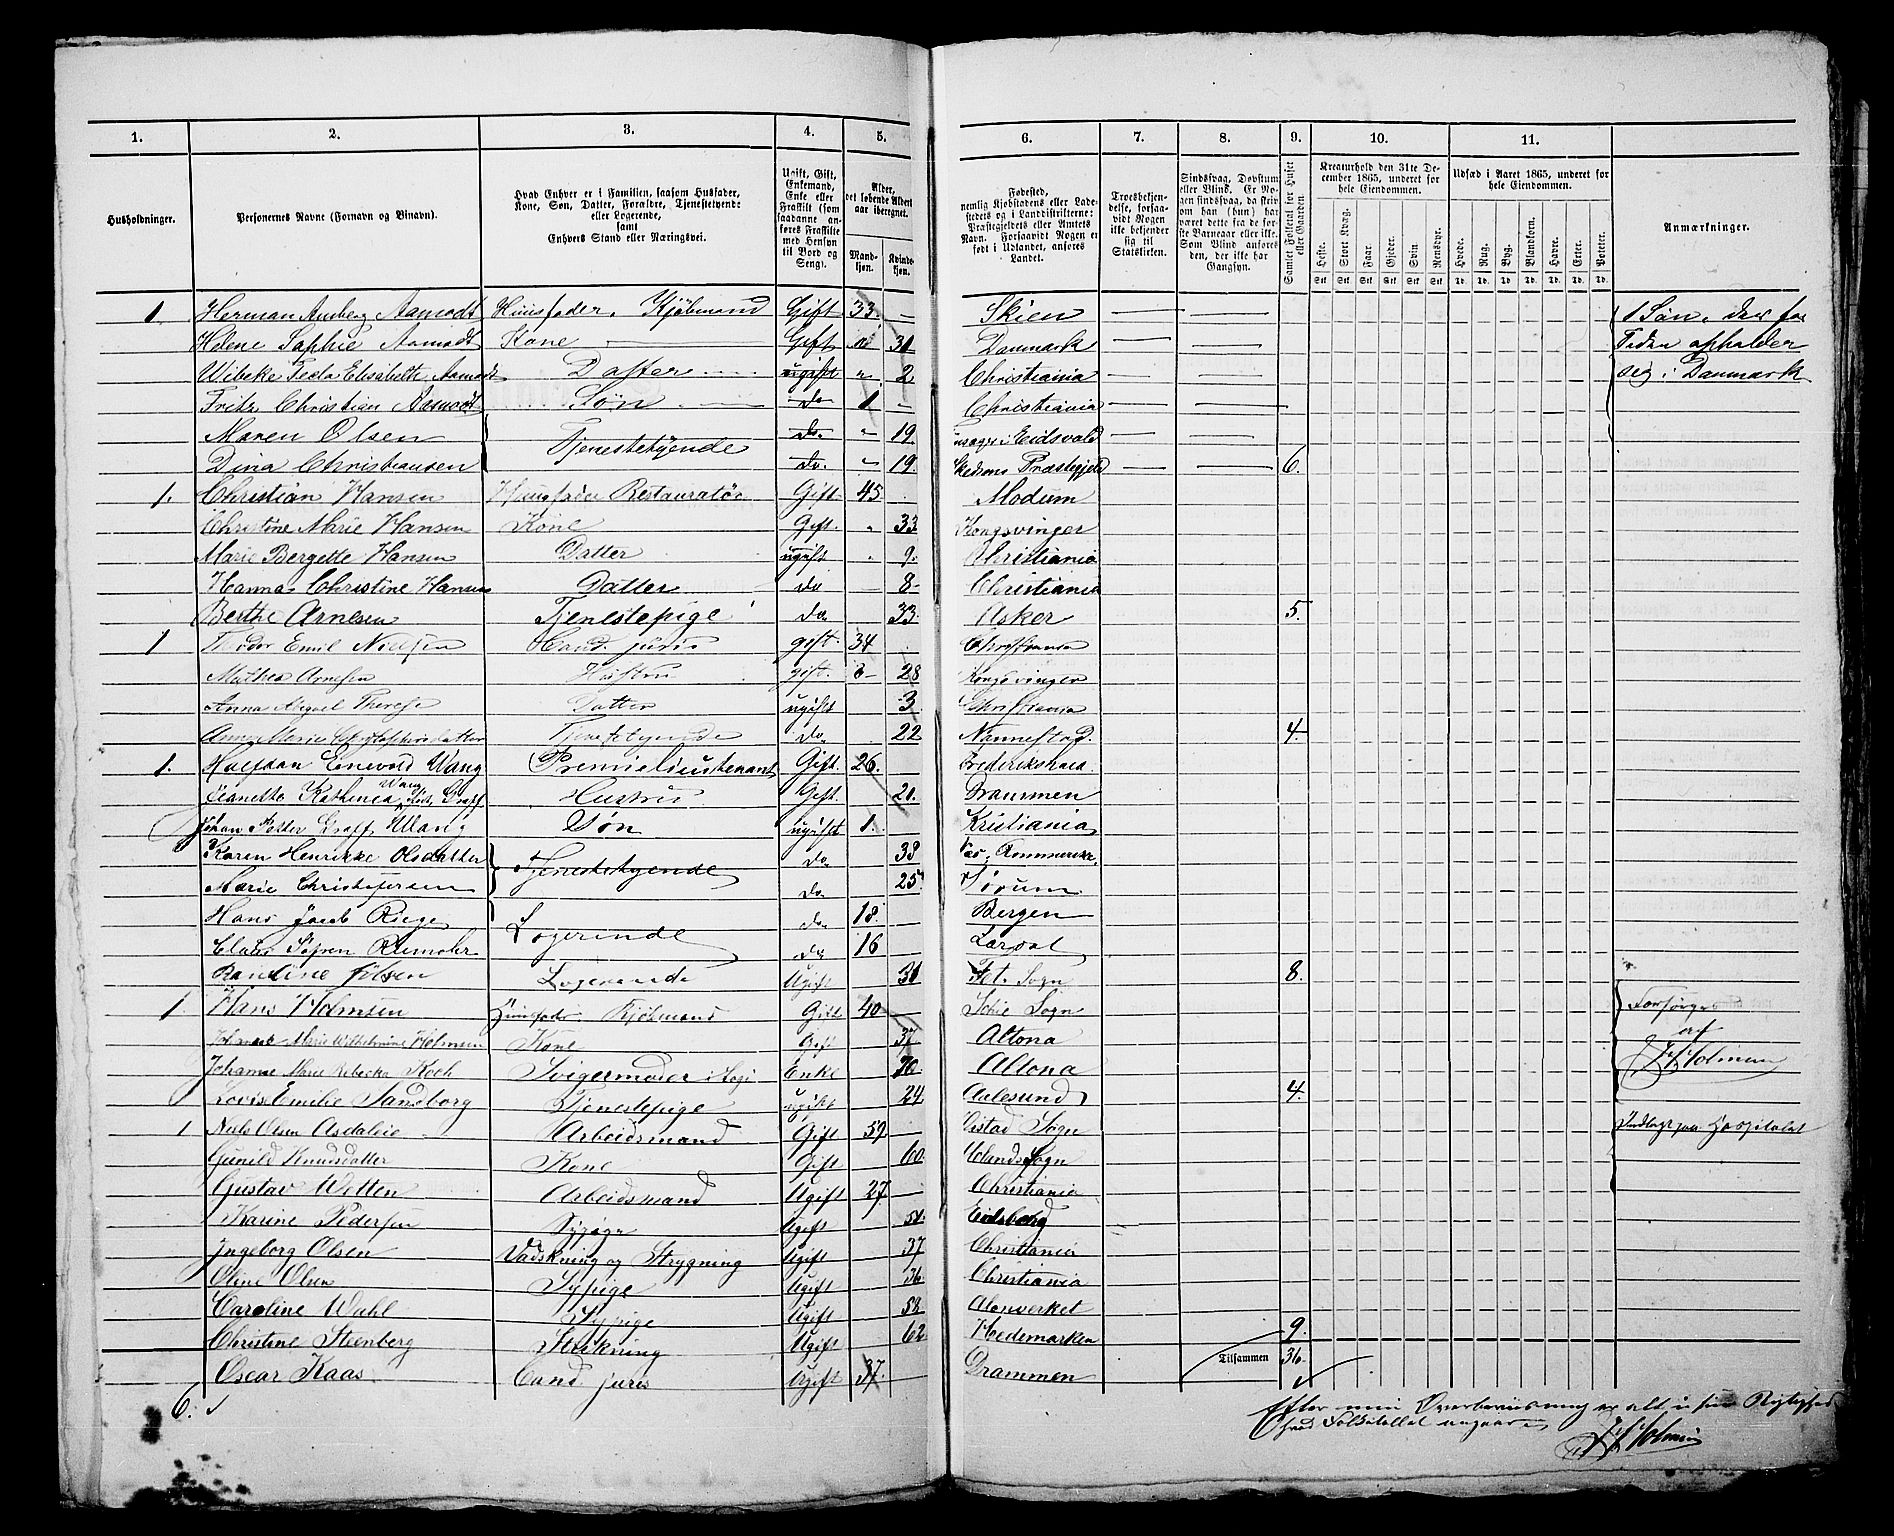 1. 2. 3. 4. 5. 6. 7. 8. 9. 10. 11.
Husholdninger.
Personernes Navne (Fornavn og Tilnavn).
Hvad Enhver er i Familien, saasom Husfader, Kone, Søn, Datter, Forældre, Tjenestetyende eller Logerende, samt Enhvers Stand eller Næringsvei.
Ugift, Gift, Enkemand, Enke eller Fraskilt (som saadanne anføres Fraskilte med Hensyn til Bord og Seng).
Alder, det løbende Alders Aar iberegnet.
Mandkjøn. Kvindekjøn.
Fødested, nemlig Kjøbstadens eller Ladestedets og i Landdistrikterne: Præstegjeldets eller Amtets Navn. Forsaavidt Nogen er født i Udlandet, anføres Landet.
Troesbekjendelse, forsaavidt Nogen ikke bekjender sig til Statskirken.
Sindssvag, Døvstum eller Blind. Er Nogen sindssvag, da skriv om han (hun) har været dette fra de første Barneaar eller ikke. Som Blind anføres den, der ikke har Gangsyn.
Samlet Folketal for Huset eller Gaarden.
Kreaturhold den 31te December 1865, underet for hele Eiendommen.
Heste. Stort Kvæg. Faar. Gjeder. Svin. Rensdyr.
Stk Stk Stk Stk Stk Stk
Udsæd i Aaret 1865, underet for hele Eiendommen.
Hvede. Rug. Byg. Blandkorn. Havre. Erter. Poteter.
Td. Td. Td. Td. Td. Td. Td.
Anmærkninger.
1. Herman Amberg Aamodt Huusfader, Kjøbmand Gift 33. — Skien — — 1 Søn, der for
Helene Sophie Aamodt Kone Gift " 31 Danmark — — Tiden opholder
Wibeke Tecla Elisabeth Aamodt Datter ugift " 2 Christiania — — sig i Danmark
Fritz Christian Aamodt Søn do 1 — Christiania — —
Maren Olsen Tjenestetyende do. " 19. Eidsvold — —
Dina Christiansen do. " 19. Præstegjeld — — 6.
1. Christian Hansen Huusfader Restauratør Gift 45 Modum
Christine Marie Hansen Kone Gift. " 33 Kongsvinger
Marie Bergette Hansen Datter ugift " 9. Christiania
Hanna Christine Hansen Datter do 8 Christiania
Berthe Arnesen Tjenestepige do 33. Asker 5.
1 Theodor Emil Nielsen Cand. juris gift. 34 Christiania
Mathea Arnesen Hustru gift. 28 Kongsvinger
Anna Abigael Therese Datter ugift 3 Christiania
Anne Marie Christophersdatter Tjenestetyende do. 22 Nannestad. 4.
1. Halfdan Enevold Wang Premierlieutenant Gift. 26. Frederikshald.
Wang
Jeanette Kathinca født Graff Hustru Gift. 21. Drammen
Johan Peter Graff Wang Søn ugift 1. Kristiania
Karen Henrikke Olsdatter Tjenestetyende do 38
Marie Christofersen do 25 Sørum
Hans Jacob Riege Logerende do 18. Bergen
Claus Søren do 16 Larvol
Pauline Jølsen Logerende Ugift 31 Fet. Sogn 8.
1. Hans Holmsen Huusfader Kjøbmand Gift 40 Sogn Forsørges
Johanne Marie Wilhelmine Holmsen Kone Gift 37 Altona af
Johanne Marie Rebecka Koch Svigermoder Enke 70. Altona Holmsen
Lovise Emilie Sandborg Tjenestepige ugift 24 Aalesund 4.
1 Niels Olsen Arbeidsmand Gift 59. Sogn Indlagt paa Hospitalet
Gunild Knudsdatter Kone Gift 60 Sogn
Gustav Wetten Arbeidsmand Ugift 27. Christiania
Karine Pedersen Sypige Ugift Eidsberg
Ingeborg Olsen Vadskning og Strygning Ugift 37 Christiania
Oline Olsen Sypige Ugift 36 Christiania
Caroline Wahl Sypige Ugift 58 Alonverket
Christine Steenberg Strikning Ugift 62 Hedemarken 9.
Oscar Kaas Cand. juris Ugift 37. Drammen Tilsammen 36.
6.
Efter min Overbeviisning er alt i sin Rigtighed
hvad Folketallet angaaer
Holmsen